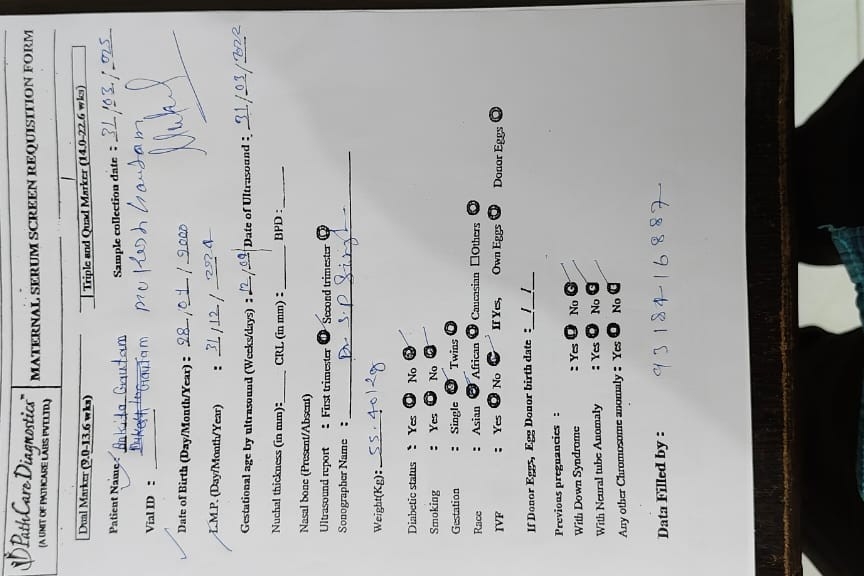 PathCare Diagnostics™
(A UNIT OF PATHCARE LABS PVT LTD.)
MATERNAL SERUM SCREEN REQUISITION FORM
Dual Marker (9.0-13.6 wks)
Triple and Quad Marker (14.0-22.6 wks)
Patient Name: Ankita Gautam Sample collection date : 31/03/025
Mukesh Gautam
Vial ID :
Date of Birth (Day/Month/Year): 28/01/2000
L.M.P. (Day/Month/Year) : 31/12/2024
Gestational age by ultrasound (Weeks/days) : 12/09 Date of Ultrasound : 31/03/2022
Nuchal thickness (in mm): CRL (in mm) : BPD :
Nasal bone (Present/Absent)
Ultrasound report : First trimester Second trimester
Sonographer Name : Dr S.P Singh
Weight(Kg): 55.40kg
Diabetic status : Yes No
Smoking : Yes No
Gestation : Single Twins
Race : Asian African Caucasian Others
IVF : Yes No If Yes, Own Eggs Donor Eggs
If Donor Eggs, Egg Donor birth date : / /
Previous pregnancies :
With Down Syndrome : Yes No
With Neural tube Anomaly : Yes No
Any other Chromosome anomaly : Yes No
Data Filled by : 9318416887